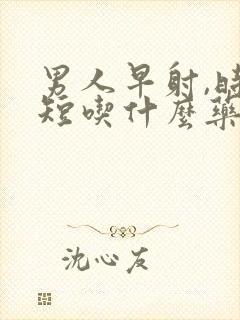 男人早射,時
短喫什麼藥
沈心友